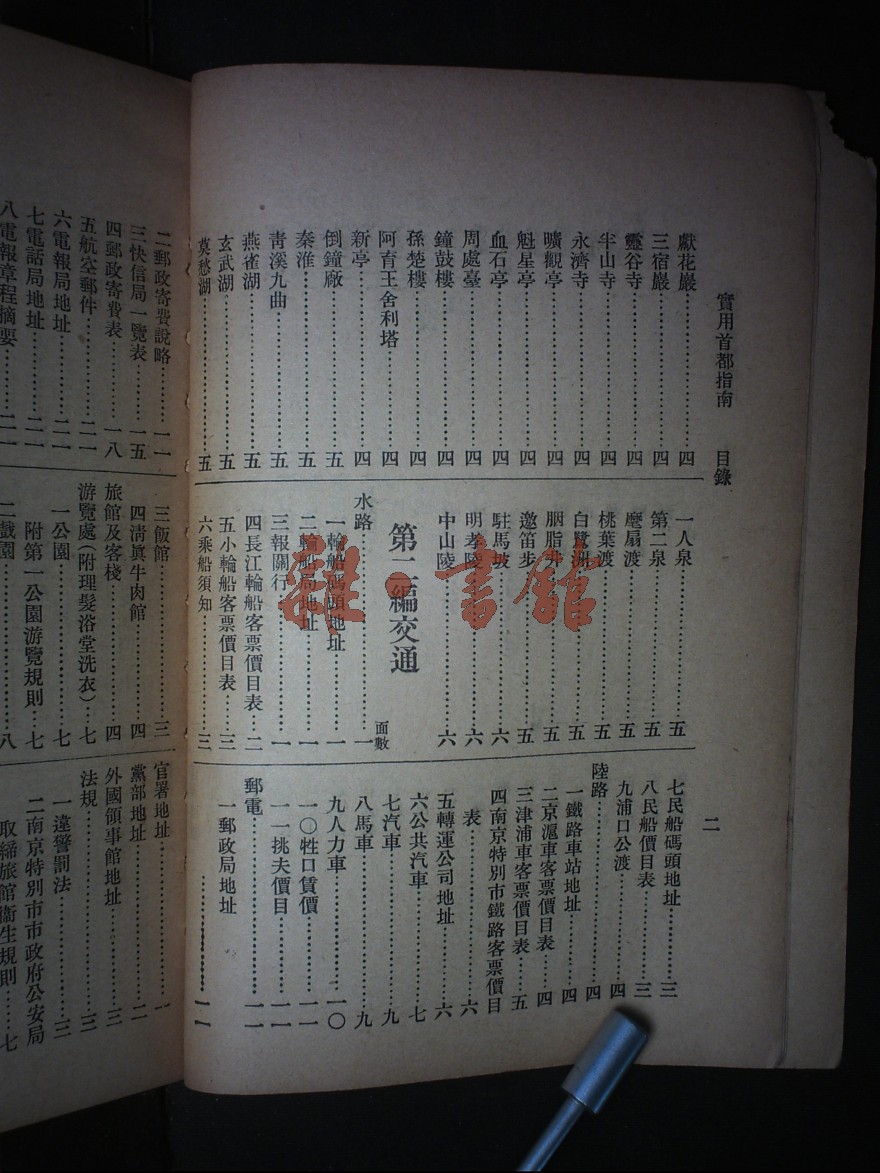 實用首都指南 目錄 二
獻花巖 四
三宿巖 四
靈谷寺 四
半山寺 四
永濟寺 四
曠觀亭 四
魁星亭 四
血石亭 四
周處臺 四
鐘鼓樓 四
孫楚樓 四
阿育王舍利塔 四
新亭 四
倒鐘廠 五
秦淮 五
青溪九曲 五
燕雀湖 五
玄武湖 五
莫愁湖 五
一人泉 五
第二泉 五
麾扇渡 五
桃葉渡 五
白鷺洲 五
胭脂井 五
邀笛步 五
駐馬坡 六
明孝陵 六
中山陵 六
第二編交通
面數
水路 一
一輪船碼頭地址 一
二輪船局地址 一
三報關行 一
四長江輪船客票價目表 二
五小輪船客票價目表 三
六乘船須知 三
七民船碼頭地址 三
八民船價目表 三
九浦口公渡 四
陸路 四
一鐵路車站地址 四
二京滬車客票價目表 四
三津浦車客票價目表 五
四南京特別市鐵路客票價目
表 六
五轉運公司地址 六
六公共汽車 七
七汽車 九
八馬車 九
九人力車 一〇
一〇牲口賃價 一一
一一挑夫價目 一一
郵電 一一
一郵政局地址 一一
二郵政寄費說略 一一
三快信局一覽表 一五
四郵政寄費表 一八
五航空郵件 二一
六電報局地址 二一
七電話局地址 二一
八電報章程摘要 二一
三飯館 三
四清眞牛肉館 四
旅館及客棧 四
游覽處(附理髮浴堂洗衣) 七
一公園 七
附第一公園游覽規則 七
二戲園 八
官署地址 一
黨部地址 二
外國領事館地址 三
法規 三
一違警罰法 三
二南京特別市市政府公安局
取締旅館衛生規則 七
雜·書館